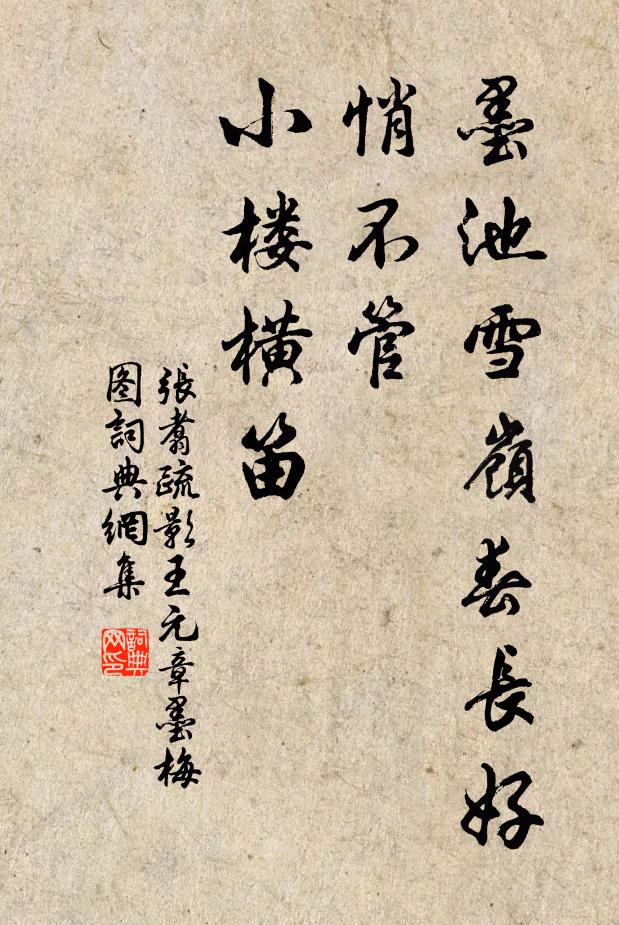 墨池雪嶺春長好
悄不管
小楼橫笛
張翥疏影王元章墨梅
图詞典網集
詞典网印